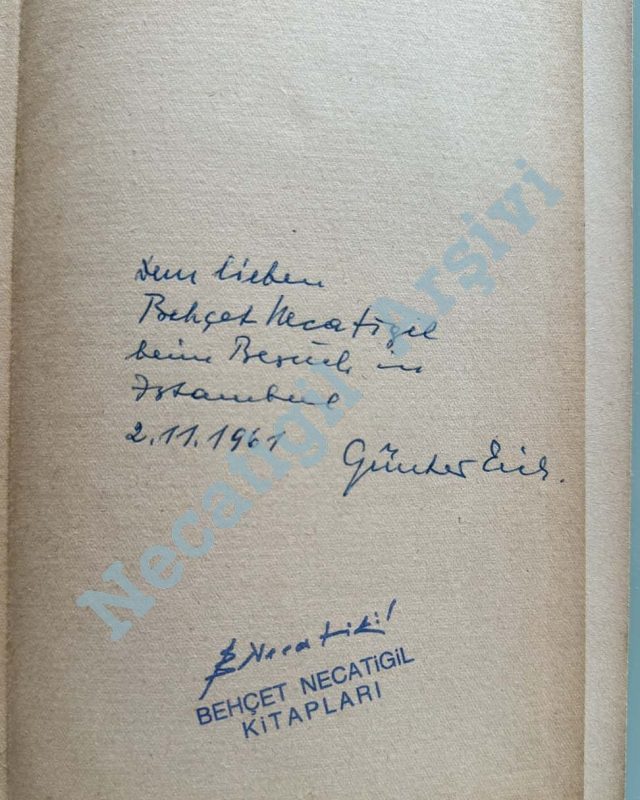 Dem lieben
Behçet Necatigil
beim Besuch in
Istambul
2.11.1961
Günter Eich.
B Necatigil
BEHÇET NECATİGİL
KİTAPLARI
Necatigil Arşivi